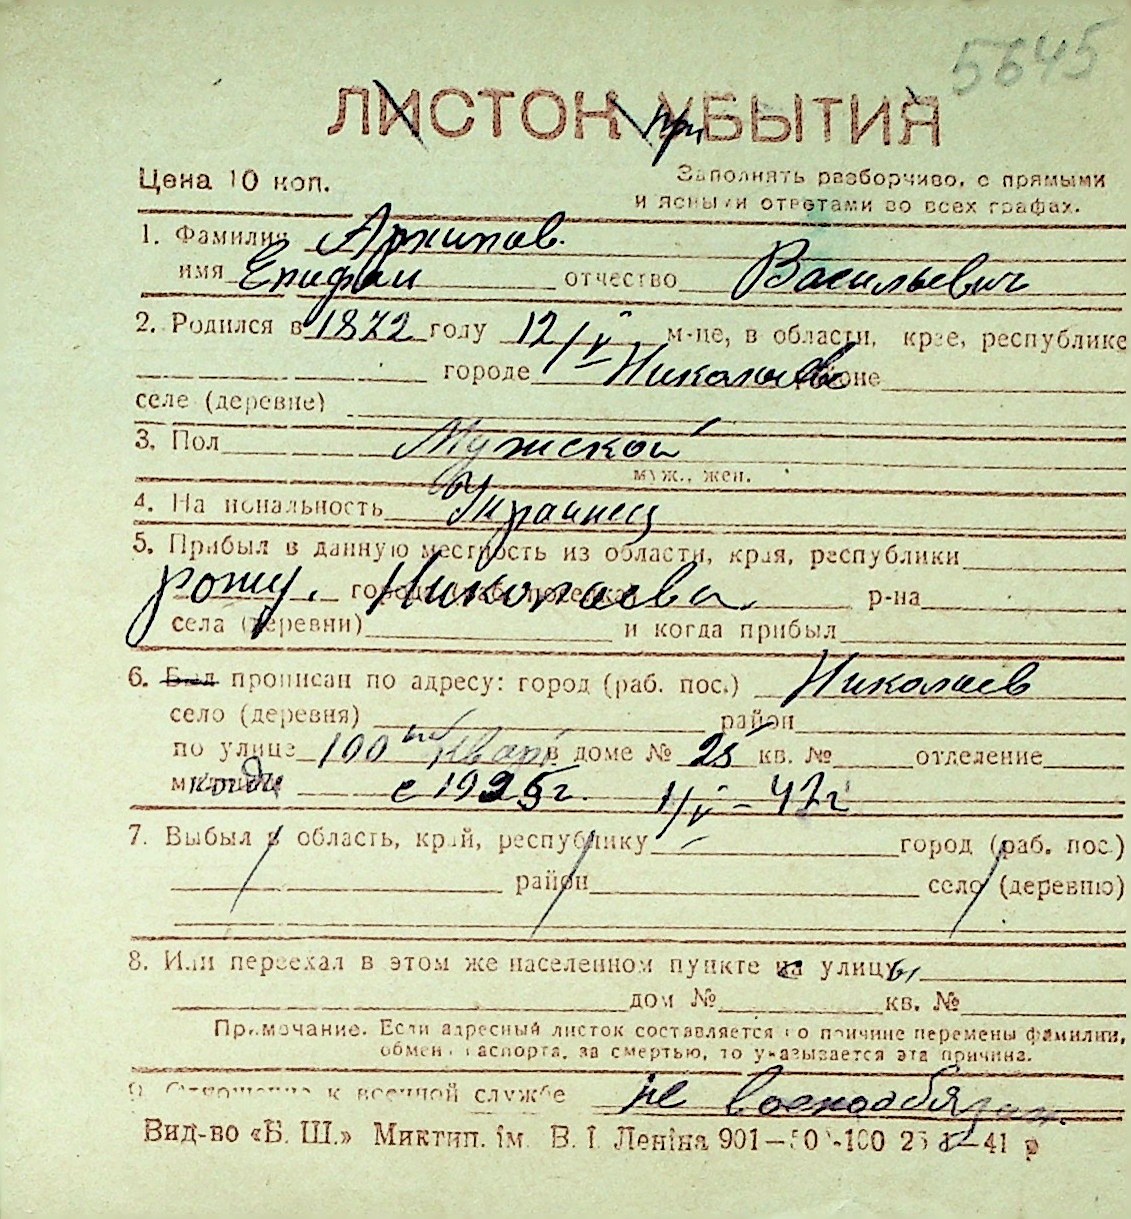 5645
ЛИСТОК при УБЫТИЯ
Цена 10 коп.
Заполнять разборчиво, с прямыми
и ясными ответами во всех графах.
1. Фамилия Архипов.
имя Епифан отчество Васильевич
2. Родился в 1872 году 12/V м-це, в области, крае, республике
городе Николаеве районе
селе (деревне)
3. Пол Мужской
муж., жен.
4. Национальность Украинец
5. Прибыл в данную местность из области, края, республики
урож. города (раб. поселка) Николаева. р-на
села (деревни) и когда прибыл
6. Был прописан по адресу: город (раб. пос.) Николаев
село (деревня) район
по улице 100 в доме № 25 кв. № отделение
милиции с 1925 г. 1/V – 42 г
7. Выбыл в область, край, республику город (раб. пос.)
район село (деревню)
8. Или переехал в этом же населенном пункте с улицы
дом № кв. №
Примечание. Если адресный листок составляется по причине перемены фамилии,
обмена паспорта, за смертью, то указывается эта причина.
9. Отношение к военной службе не военнообязан.
Вид-во «Б. Ш.» Миктип. ім. В. І. Леніна 901—50 -100 25 —41 р